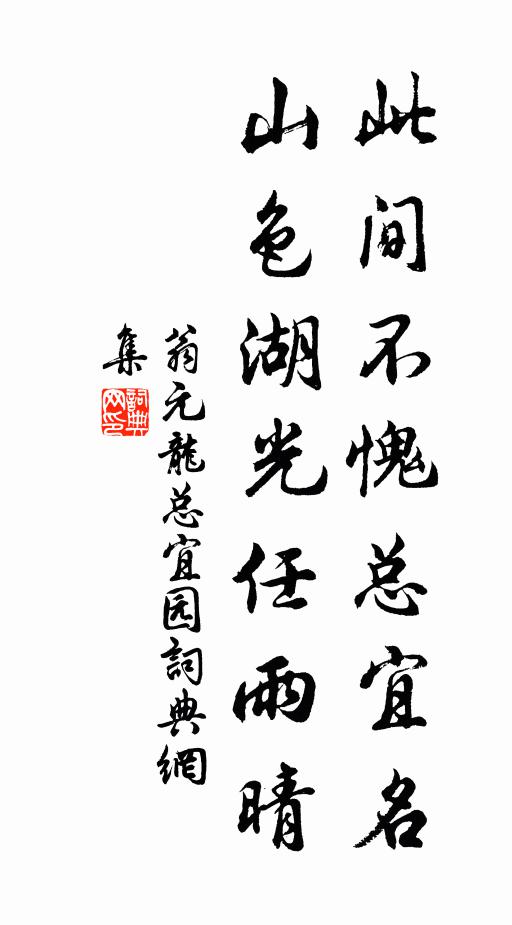 此间不愧总宜名
山色湖光任雨晴
翁元龍总宜园詞典網
集
詞典
网印